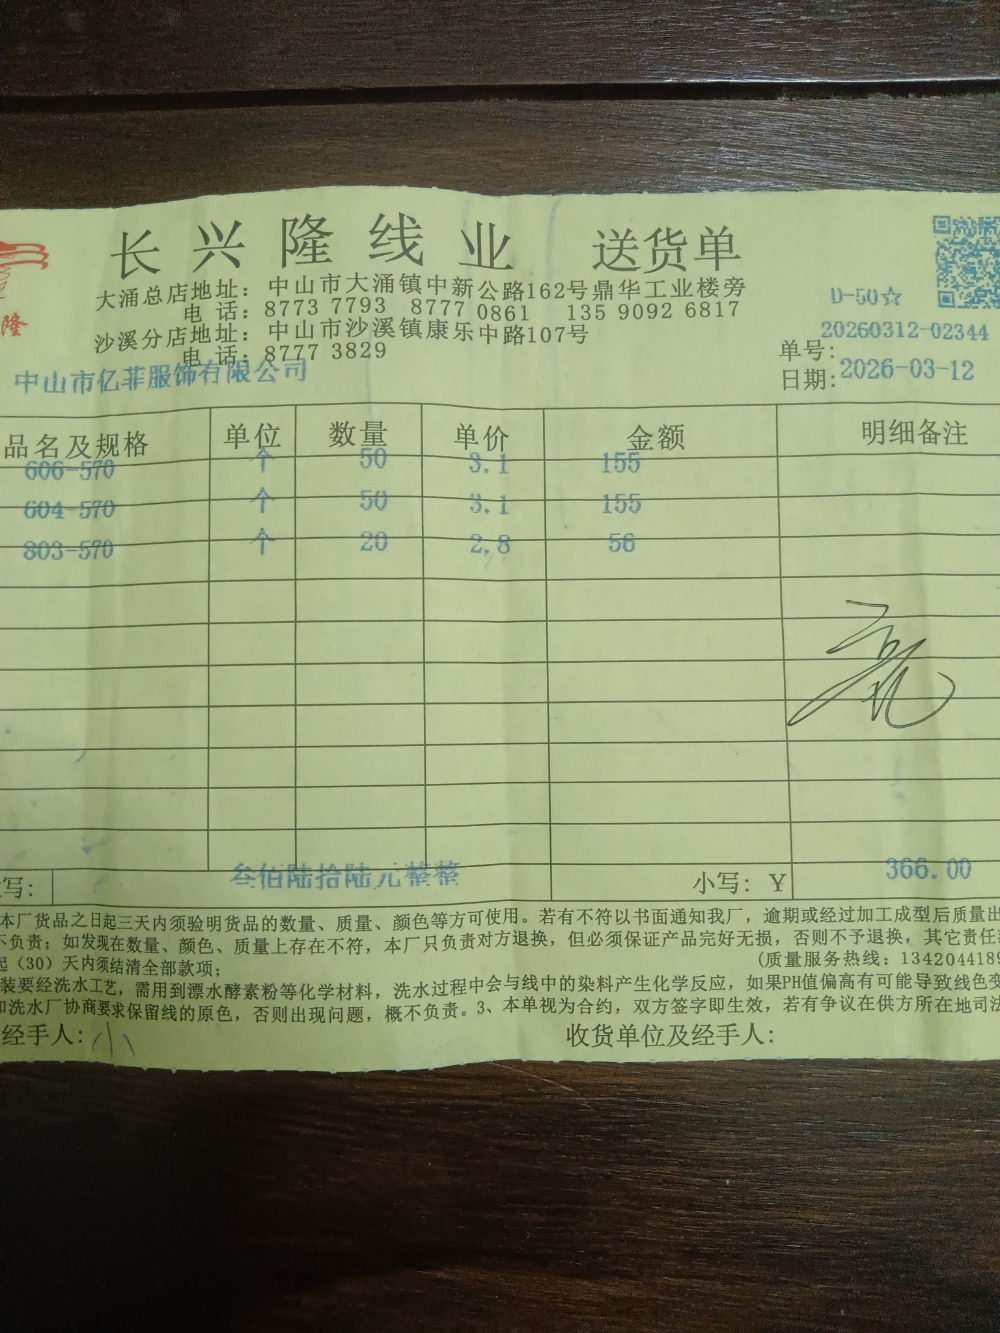 长兴隆线业 送货单
隆
大涌总店地址：中山市大涌镇中新公路162号鼎华工业楼旁
电 话：8773 7793 8777 0861 135 9092 6817
D-50☆
沙溪分店地址：中山市沙溪镇康乐中路107号
电 话：8777 3829
单号：20260312-02344
中山市亿菲服饰有限公司
日期：2026-03-12
品名及规格 单位 数量 单价 金额 明细备注
606-570 个 50 3.1 155
604-570 个 50 3.1 155
803-570 个 20 2.8 56
写： 叁佰陆拾陆元整整 小写：￥ 366.00
本厂货品之日起三天内须验明货品的数量、质量、颜色等方可使用。若有不符以书面通知我厂，逾期或经过加工成型后质量出
不负责；如发现在数量、颜色、质量上存在不符，本厂只负责对方退换，但必须保证产品完好无损，否则不予退换，其它责任
起（30）天内须结清全部款项； (质量服务热线：1342044189
装要经洗水工艺，需用到漂水酵素粉等化学材料，洗水过程中会与线中的染料产生化学反应，如果PH值偏高有可能导致线色变
和洗水厂协商要求保留线的原色，否则出现问题，概不负责。3、本单视为合约，双方签字即生效，若有争议在供方所在地司法
经手人： 收货单位及经手人：